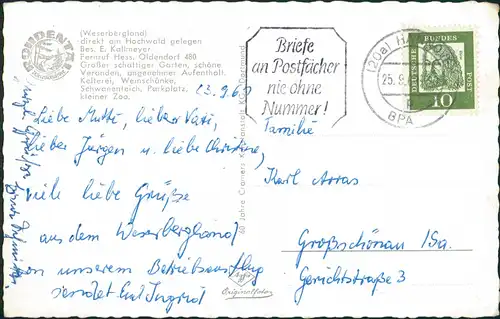 (Weserbergland)
direkt am Hochwald gelegen
Bes. E. Kallmeyer
Fernruf Hess. Oldendorf 480
Großer schattiger Garten, schöne
Veranden, angenehmer Aufenthalt.
Kellerei, Weinschänke,
Schwanenteich, Parkplatz,
kleiner Zoo.
23.9.6
Liebe Mutti, lieber Vati,
lieber Jürgen u. liebe Christine,
viele liebe Grüße
aus dem Weserbergland
von unserem Betriebsausflug
sendet Eure Ingrid
60 Jahre Cramers Kunstanstalt KG, Dortmund
Originalfoto
Briefe
an Postfächer
nie ohne
Nummer!
(20a)
25.9.
BPA
DEUTSCHE BUNDESPOST
10
Familie
Karl Arras
Großschönau / Sa.
Gerichtstraße 3